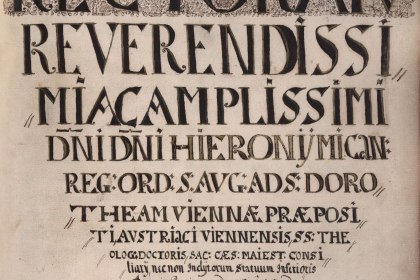 REVERENDISSI
MI AC AMPLISSIMI
DNI DNI HIERONYMI CAN:
REG: ORD: S. AUG: AD S: DORO
THEAM VIENNÆ PRÆPOSI
TI, AUSTRIACI VIENNENSIS, SS: THE
OLOG: DOCTORIS, SAC: CÆS: MAIEST: CONSI
liarij nec non Inclytorum Statuum Inferioris